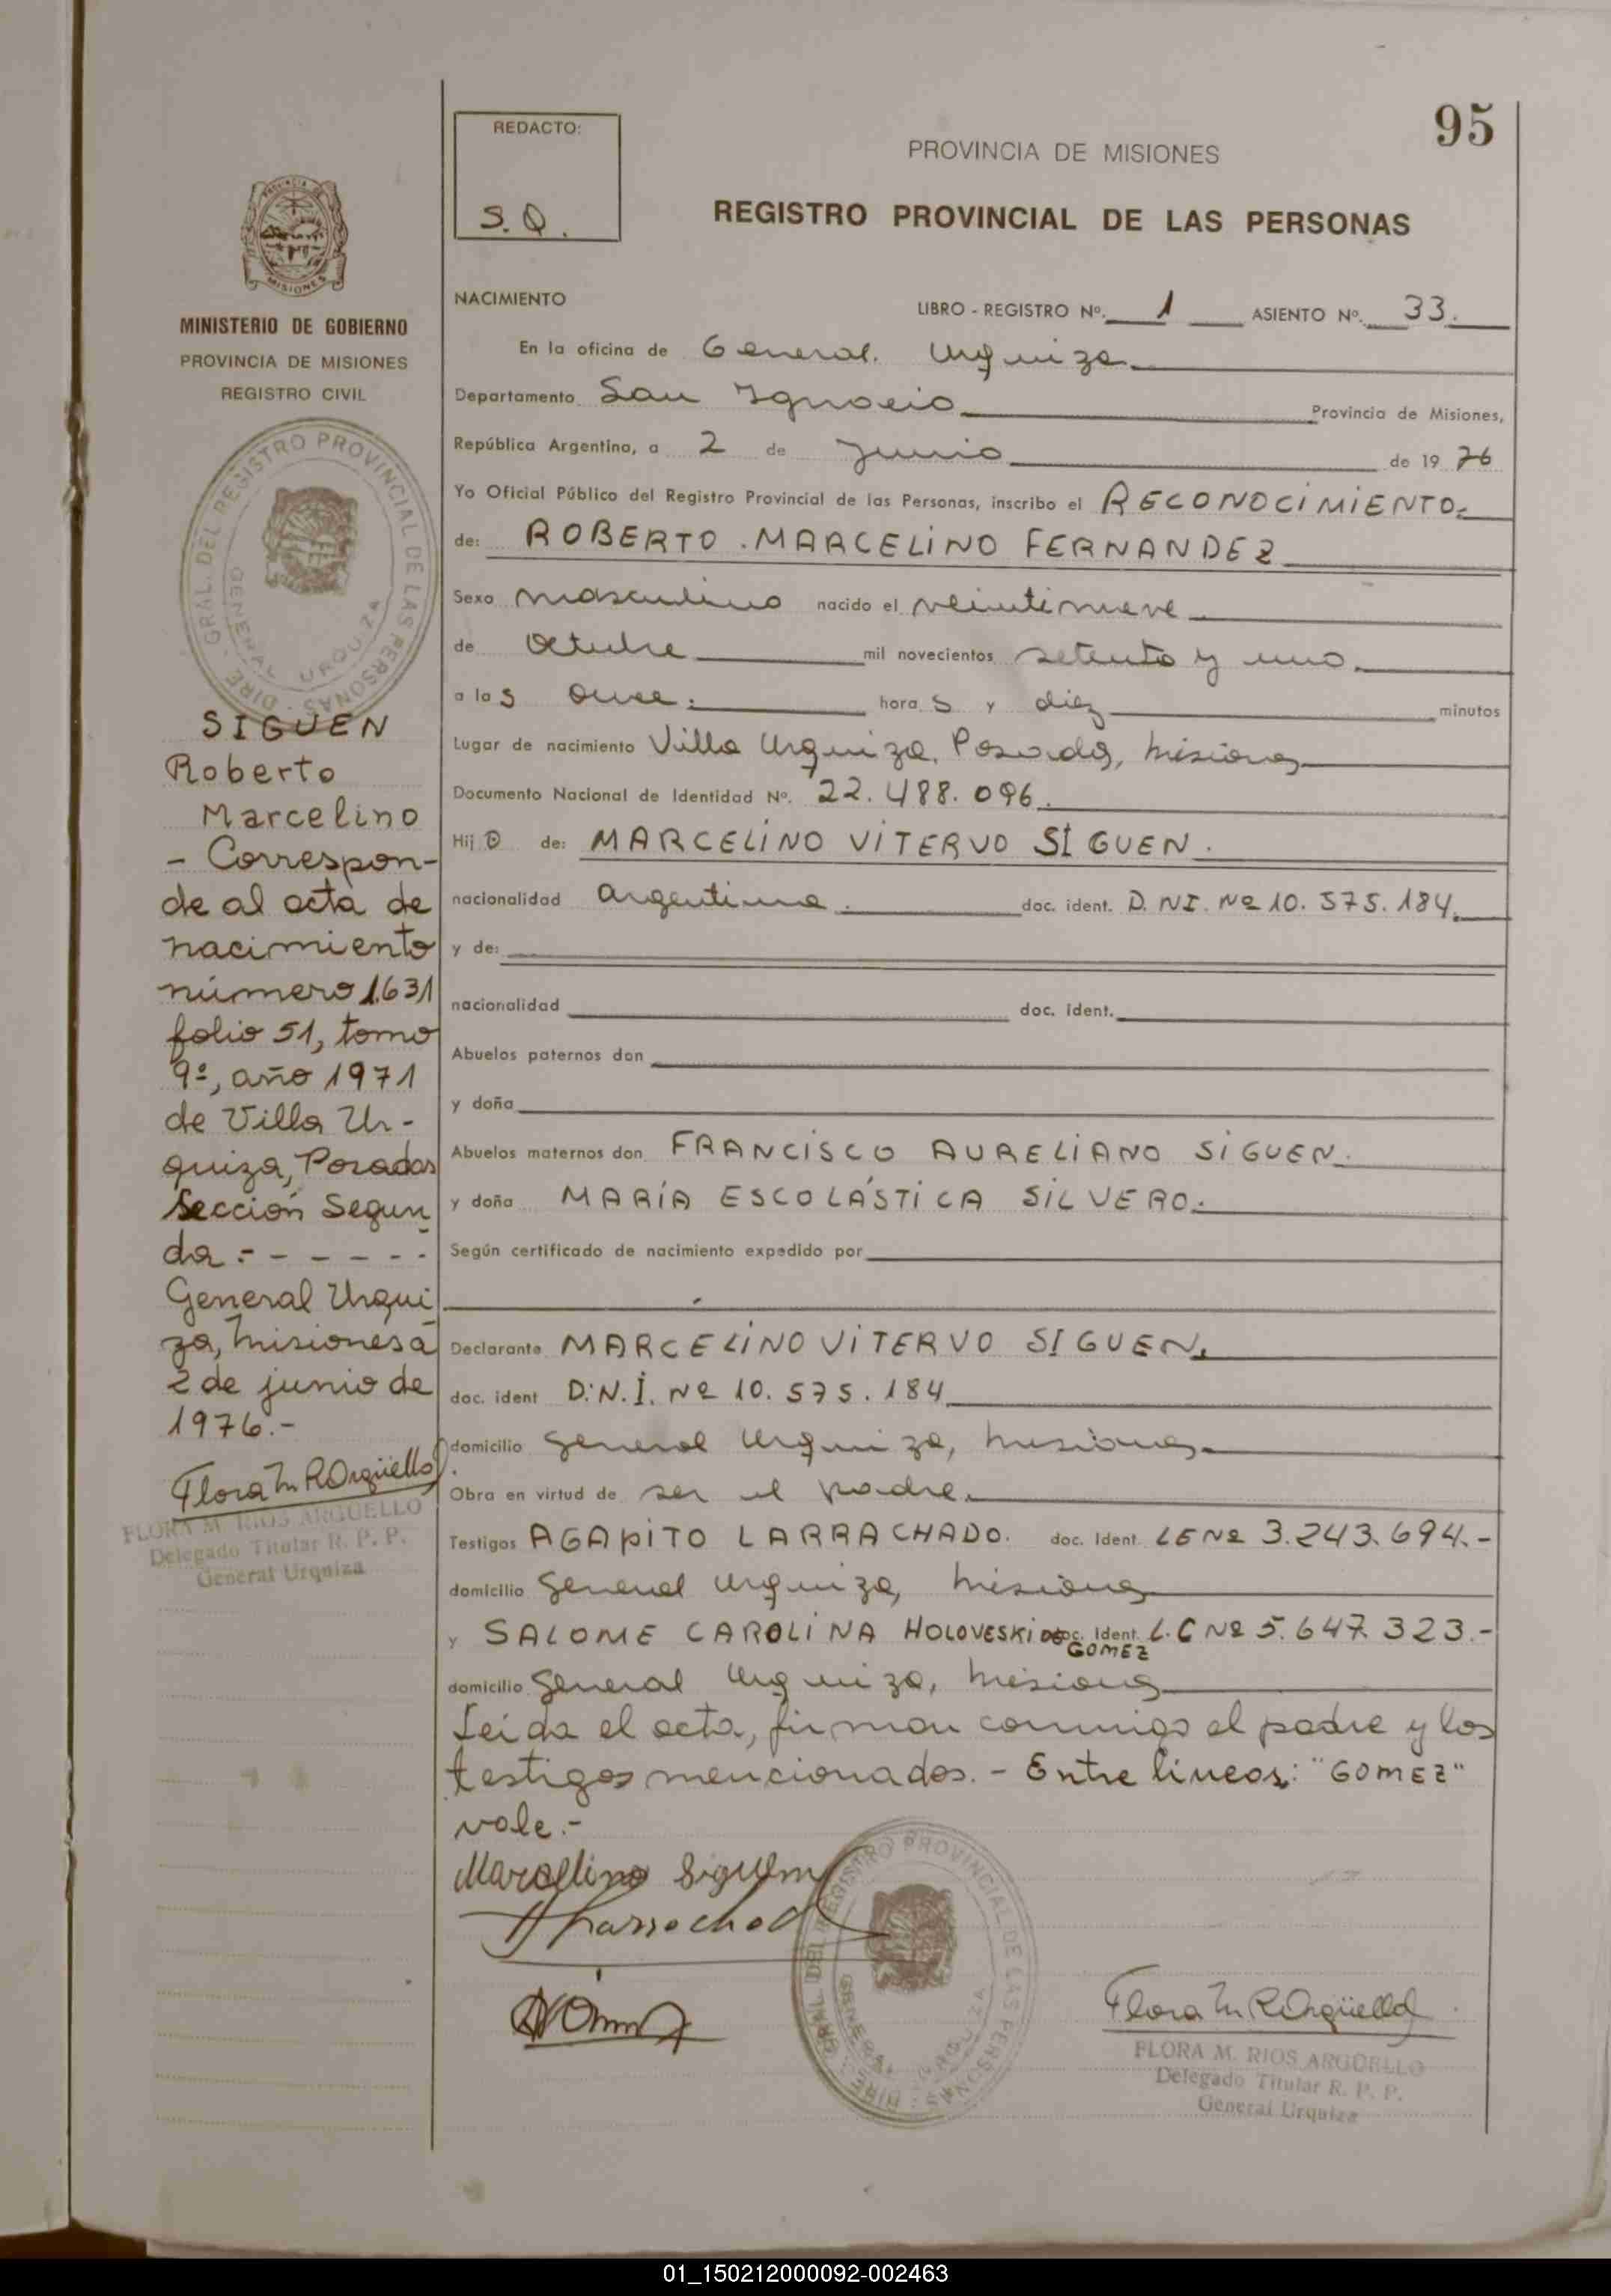 95
REDACTO:
S.Q.
PROVINCIA DE MISIONES
REGISTRO PROVINCIAL DE LAS PERSONAS
MISIONES
MINISTERIO DE GOBIERNO
PROVINCIA DE MISIONES
REGISTRO CIVIL
DIRE. GRAL. DEL REGISTRO PROVINCIAL DE LAS PERSONAS
GENERAL URQUIZA
SIGUEN
Roberto
Marcelino
- Correspon-
de al acta de
nacimiento
número 1631
folio 51, tomo
9º, año 1971
de Villa Ur-
quiza, Posadas
Sección Segun
da.- - - - - -
General Urqui
za, Misiones a
2 de junio de
1976.-
Flora M R Argüello
FLORA M. RIOS ARGÜELLO
Delegado Titular R. P. P.
General Urquiza
NACIMIENTO LIBRO - REGISTRO Nº. 1 ASIENTO Nº. 33.
En la oficina de General Urquiza
Departamento San Ignacio Provincia de Misiones,
República Argentina, a 2 de Junio de 19 76
Yo Oficial Público del Registro Provincial de las Personas, inscribo el RECONOCIMIENTO
de: ROBERTO MARCELINO FERNANDEZ
Sexo masculino nacido el veintinueve
de Octubre mil novecientos setenta y uno.
a las once. horas y diez minutos
Lugar de nacimiento Villa Urquiza, Posadas, Misiones
Documento Nacional de Identidad Nº. 22.488.096.
Hijo de: MARCELINO VITERVO SIGUEN.
nacionalidad argentina. doc. ident. D.NI. Nº 10.575.184.
y de:
nacionalidad doc. ident.
Abuelos paternos don
y doña
Abuelos maternos don FRANCISCO AURELIANO SIGUEN.
y doña MARÍA ESCOLÁSTICA SILVERO.
Según certificado de nacimiento expedido por
Declarante MARCELINO VITERVO SIGUEN.
doc. ident D.N.I. Nº 10.575.184
domicilio General Urquiza, Misiones
Obra en virtud de ser el padre.
Testigos AGAPITO LARRACHADO. doc. Ident LE Nº 3.243.694.-
domicilio General Urquiza, Misiones
y SALOME CAROLINA HOLOVESKI DE doc. Ident. L.C Nº 5.647.323.-
GOMEZ
domicilio General Urquiza, Misiones
Leída el acta, firman conmigo el padre y los
testigos mencionados.- Entre líneas: "GOMEZ"
vale.-
Marcelino Siguen
DIRE. GRAL. DEL REGISTRO PROVINCIAL DE LAS PERSONAS
GENERAL URQUIZA
Flora M R Argüello
FLORA M. RIOS ARGÜELLO
Delegado Titular R. P. P.
General Urquiza
01_150212000092-002463